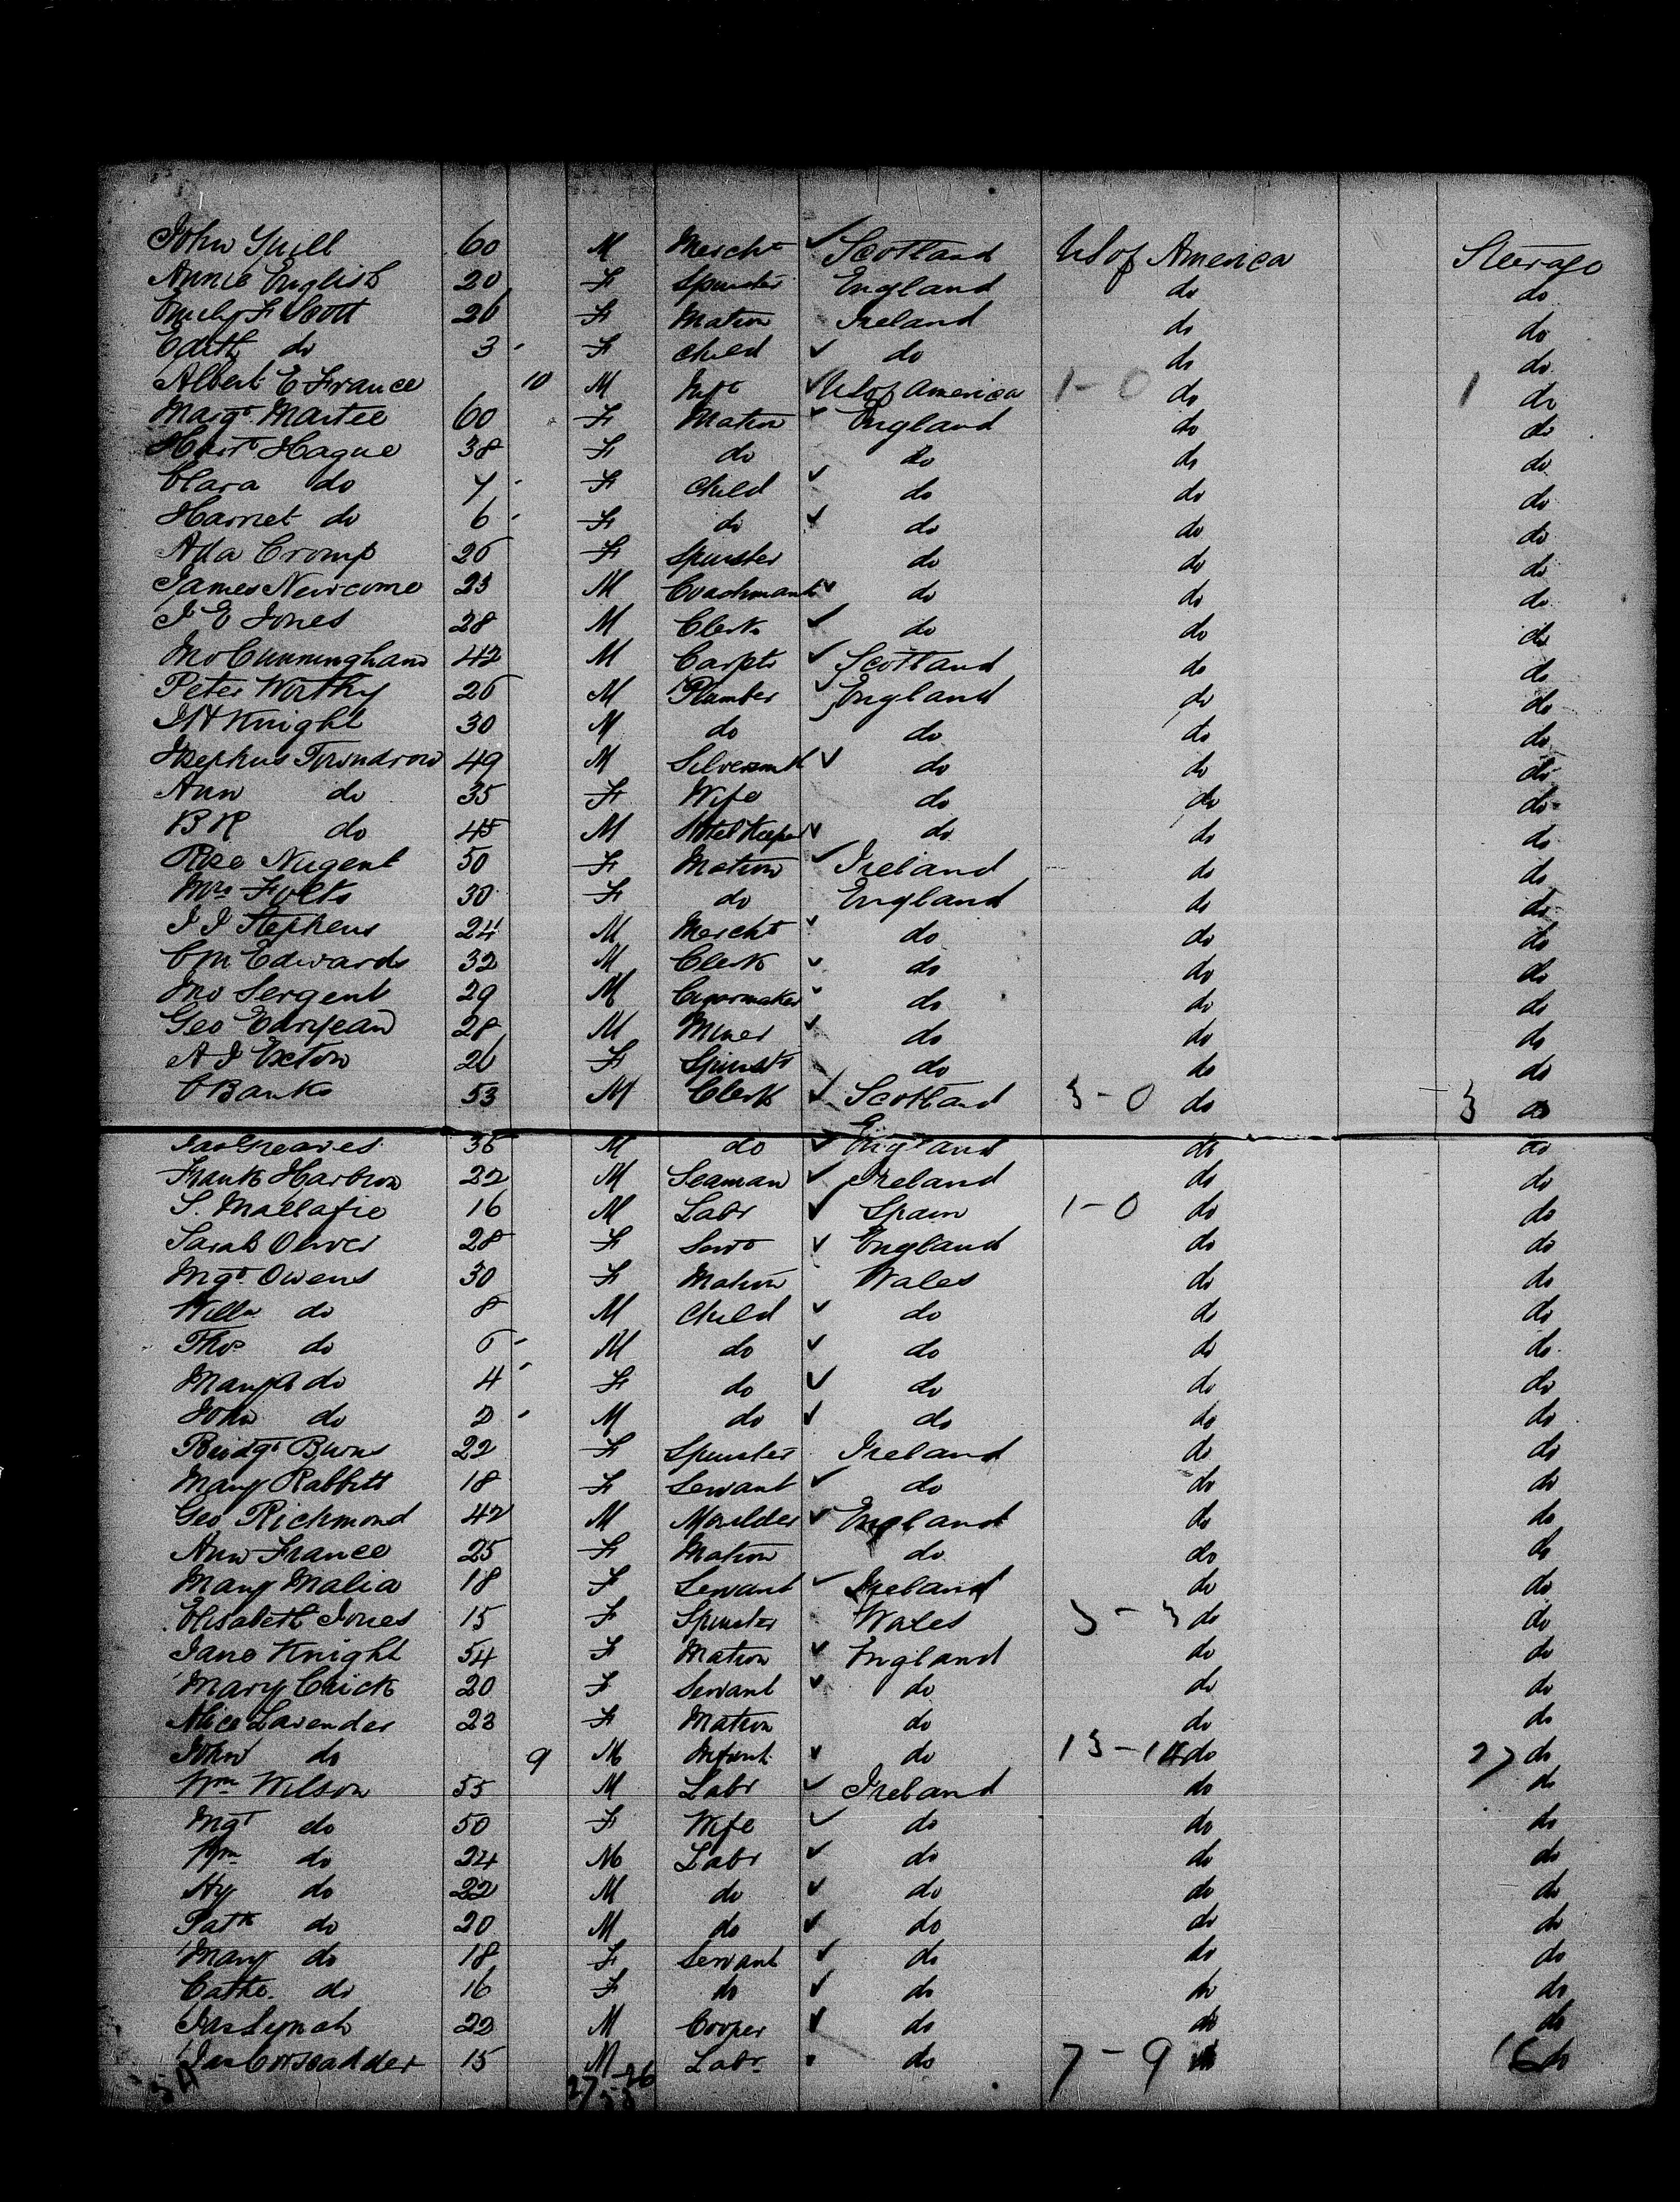 John 60 M Mercht ✓ Scotland US of America Steerage
Annie English 20 F Spinster England do do
Emily F Scott 26 F Matron Ireland do do
Edith do 3 F Child ✓ do do do
Albert E France 10 M Inft ✓ US of America 1-0 do 1 do
Margt 60 F Matron ✓ England do do
Hague 38 F do do do do
Clara do 7 F Child ✓ do do do
Harriet do 6 F do ✓ do do do
Ada Cromp 26 F Spinster do do do
James Newcome 23 M Coachman ✓ do do do
J E Jones 28 M Clerk ✓ do do do
Jno Cunningham 42 M Carptr ✓ Scotland do do
Peter Worthy 26 M Plumber ✓ England do do
Knight 30 M do do do do
Josephus 49 M Silversmith ✓ do do do
Ann do 35 F Wife do do do
B R do 45 M Hotel Keeper ✓ do do do
Rose Nugent 50 F Matron ✓ Ireland do do
Mrs 30 F do England do do
J J Stephens 24 M Mercht ✓ do do do
C M Edwards 32 M Clerk ✓ do do do
Jno Sergent 29 M Cigarmaker ✓ do do do
Geo 28 M Miner ✓ do do do
A J Exton 26 F Spinstr do do do
C Banks 53 M Clerk ✓ Scotland 3-0 do 3 do
Jas Greaves M do ✓ England do do
Frank 22 M Seaman ✓ Ireland do do
S. 16 M Labr ✓ Spain 1-0 do do
Sarah Oliver 28 F Servt ✓ England do do
Mgt Owens 30 F Matron Wales do do
Willm do 8 M Child ✓ do do do
Thos do 6 M do ✓ do do do
Mary A do 4 F do ✓ do do do
John do 2 M do ✓ do do do
Bridgt Burns 22 F Spinster Ireland do do
Mary Rabbitt 18 F Servant ✓ do do do
Geo Richmond 42 M Moulder ✓ England do do
Ann France 25 F Matron do do do
Mary Malia 18 F Servant ✓ Ireland do do
Elisabeth Jones 15 F Spinster Wales 3-3 do do
Jane Knight 54 F Matron ✓ England do do
Mary 20 F Servant ✓ do do do
Alice Lavender 23 F Matron do do do
John do 9 M Infant ✓ do 13-14 do 27 do
Wm Wilson 55 M Labr ✓ Ireland do do
Mgt do 50 F Wife ✓ do do do
Wm do 24 M Labr ✓ do do do
Hy do 22 M do ✓ do do do
Patk do 20 M do ✓ do do do
Mary do 18 F Servant ✓ do do do
Cathe. do 16 F do ✓ do do do
Jas Lynch 22 M Cooper ✓ do do do
Jas 15 M Labr do 7-9 do 16 do
54 27-26